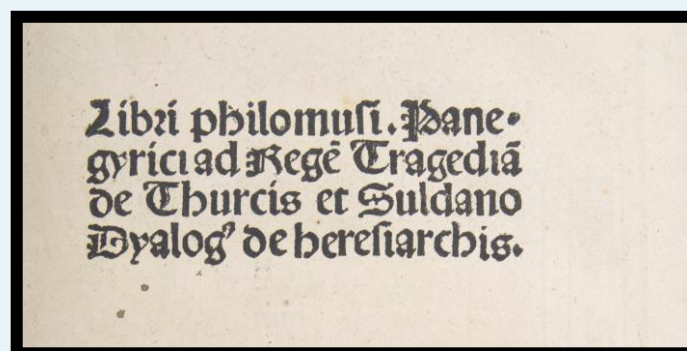 Libri philomusi. Pane-
gyrici ad Regē Tragediā
de Thurcis et Suldano
Dyalog' de heresiarchis.